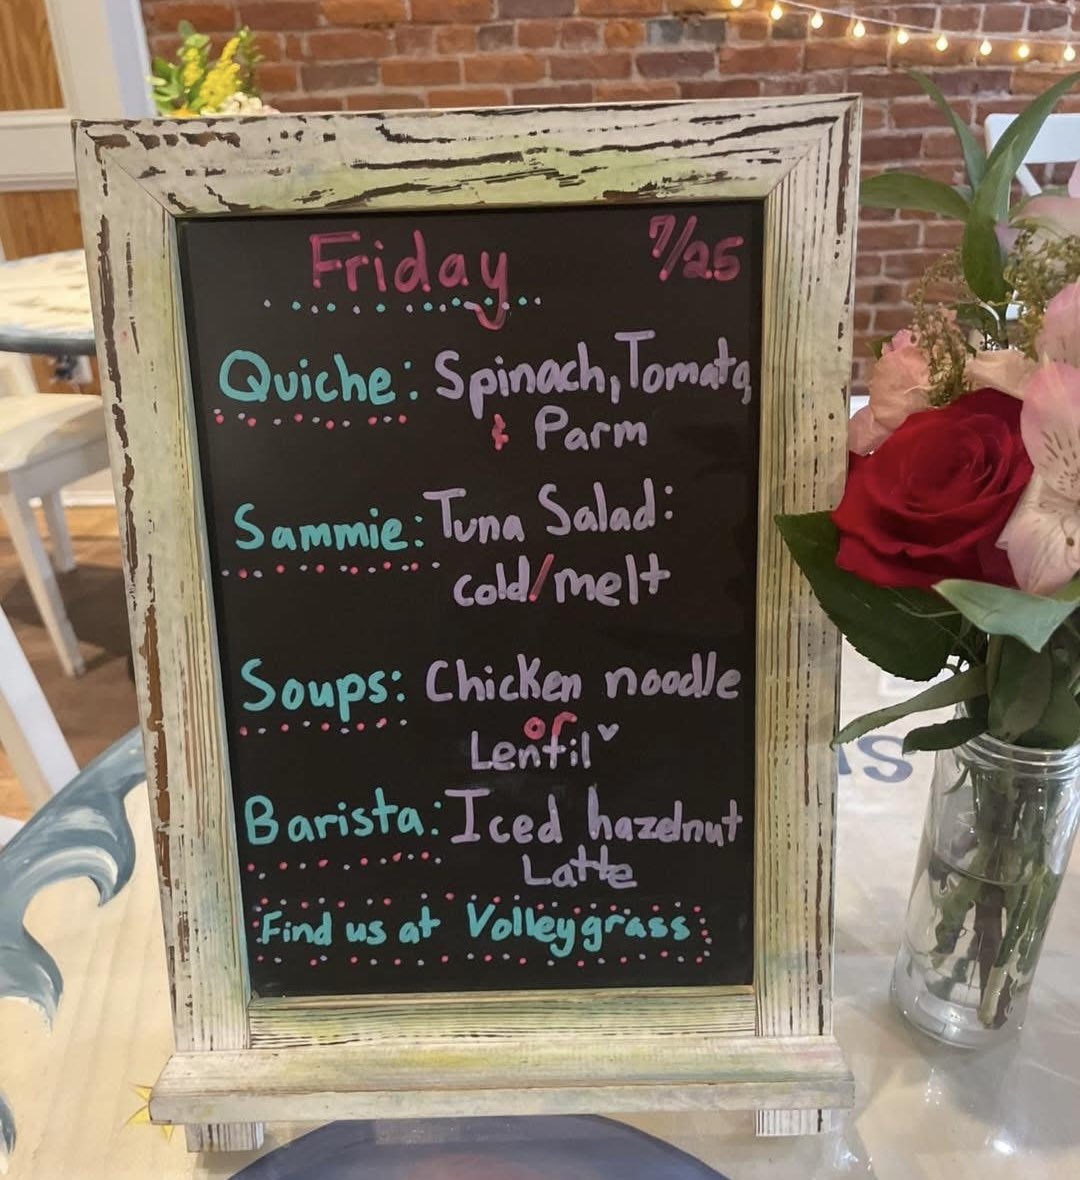 Friday 7/25
Quiche: Spinach, Tomato,
& Parm
Sammie: Tuna Salad:
cold/melt
Soups: Chicken noodle
or
Lentil
Barista: Iced hazelnut
Latte
Find us at Volleygrass